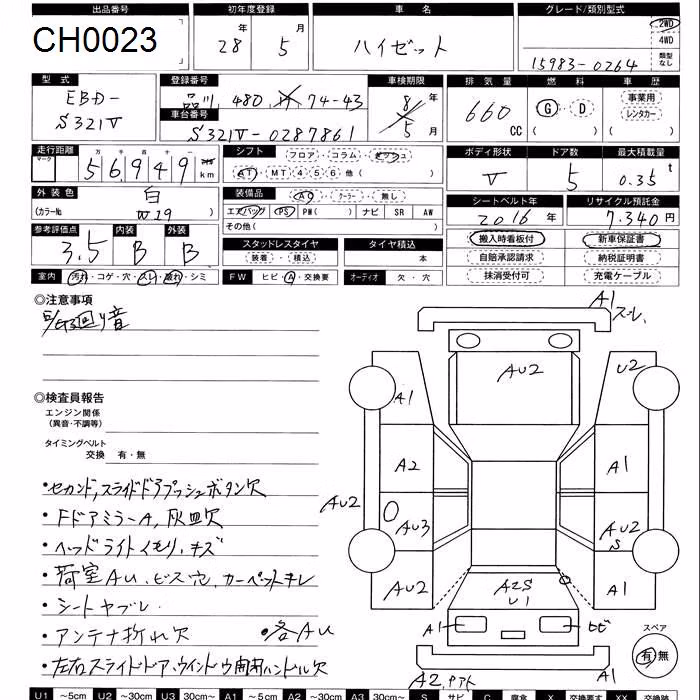 出品番号 初年度登録 車名 グレード/類別型式
CH0023 28年 5月 ハイゼット 15983-0264
2WD
4WD
類型なし
型式 登録番号 車検期限 排気量 燃料 車歴
EBD-S321V 品川 480 74-43 8年 5月 660cc G・D ( ) 事業用 レンタカー ( )
車台番号 S321V-0287861
走行距離 シフト フロア・コラム・ ボディ形状 ドア数 最大積載量
マーク 万 千 百 十 一
56,949 km AT・MT 4・5・6・他( ) V 5 0.35t
外装色 装備品 AC・クーラー・無し シートベルト年 リサイクル預託金
白 エアバッグ PS PW( ) ナビ SR AW 2016年 7,340円
(カラーNo. W19 その他( )
参考評価点 内装 外装 スタッドレスタイヤ タイヤ積込 搬入時看板付 新車保証書
3.5 B B 装着・積込 本 自賠承認請求 納税証明書
室内 汚れ・コゲ・穴・スレ・破れ・シミ FW ヒビ・A・交換要 オーディオ 欠・穴 抹消受付可 充電ケーブル
◎注意事項
E/G 回り音
◎検査員報告
エンジン関係
(異音・不調等)
タイミングベルト
交換 有・無
・セカンド,スライドドアプッシュボタン欠
・FドアミラーA,灰皿欠
・ヘッドライトくもり、キズ
・荷室AU、ビス穴、カーペットキレ
・シートヤブレ
・アンテナ折れ欠 ・各AU
・左右スライドドア,ウインドウ開閉ハンドル欠
A1 スレ
AU2
U2
A1
A2
A1
AU2
AU3
AU2
S
AU2
A2S
U1
A1
A1
ヒビ
A2,
A1
スペア
有 無
U1 ~5cm U2 ~30cm U3 30cm~ A1 ~5cm A2 ~30cm A3 30cm~ S サビ C 腐食 X 交換要す XX 交換跡